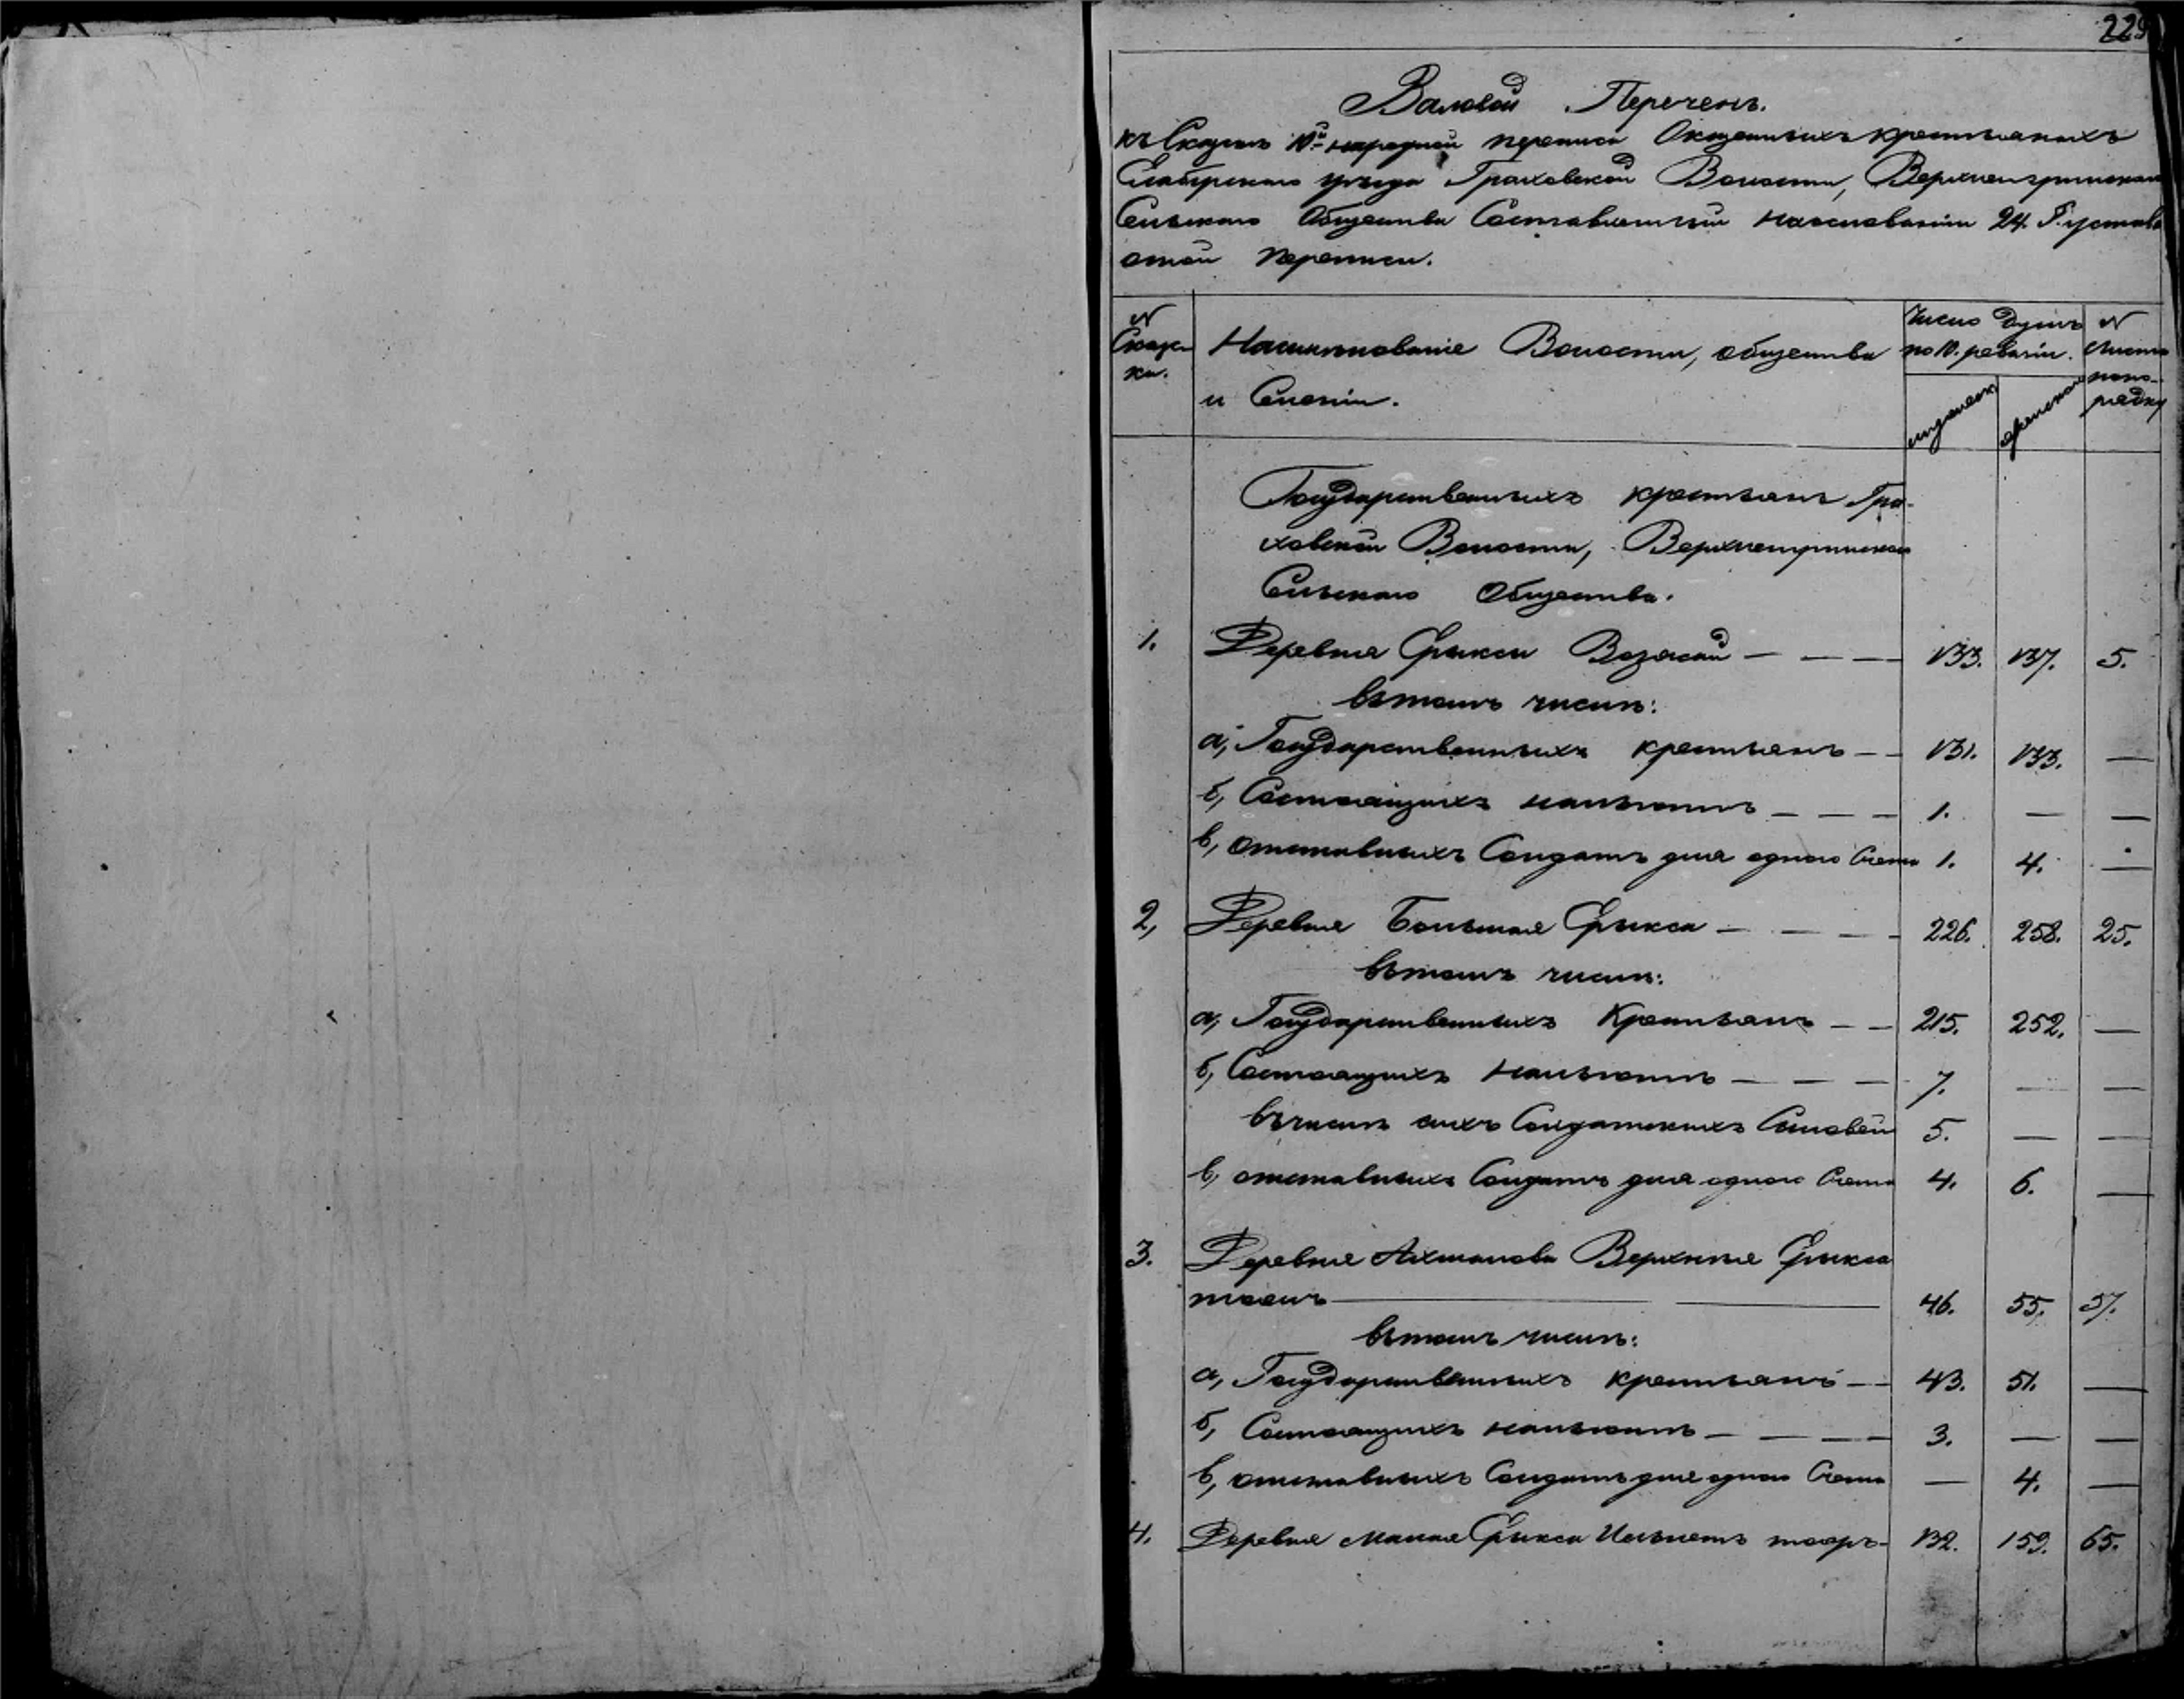 229
Валовой Перечень.
къ Сказкамъ 10й народной переписи О казенныхъ крестьянахъ
Елабугскаго уѣзда Граховской Волости, Верхнеигринскаго
Сельскаго Общества Составленный на основаніи 24. П. устава
о той переписи.
N Сказ-
ки.
Наименованіе Волости, общества
и Селеній.
Число душъ
по 10. ревизіи.
мужеска
женска
N
Листа
по по-
рядку
Государственныхъ крестьянъ Гра-
ховской Волости, Верхнеигринскаго
Сельскаго Общества.
1. Деревня Возжай — — — 133. 137. 5.
въ томъ числѣ:
а, Государственныхъ крестьянъ — — 131. 133. —
б, Состоящихъ на льготѣ — — — 1. — —
в, отставныхъ Солдатъ для одного Счета 1. 4. —
2, Деревня Большая — — — 226. 258. 25.
въ томъ числѣ:
а, Государственныхъ Крестьянъ — — 215. 252. —
б, Состоящихъ на льготѣ — — — 7. — —
въ числѣ ихъ Солдатскихъ Сыновей 5. — —
в, отставныхъ Солдатъ для одного Счета 4. 6. —
3. Деревня Верхняя
тожъ — — 46. 55. 57.
въ томъ числѣ:
а, Государственныхъ крестьянъ — — 43. 51. —
б, Состоящихъ на льготѣ — — — 3. — —
в, отставныхъ Солдатъ для одного Счета — 4. —
4. Деревня Малая 132. 159. 65.